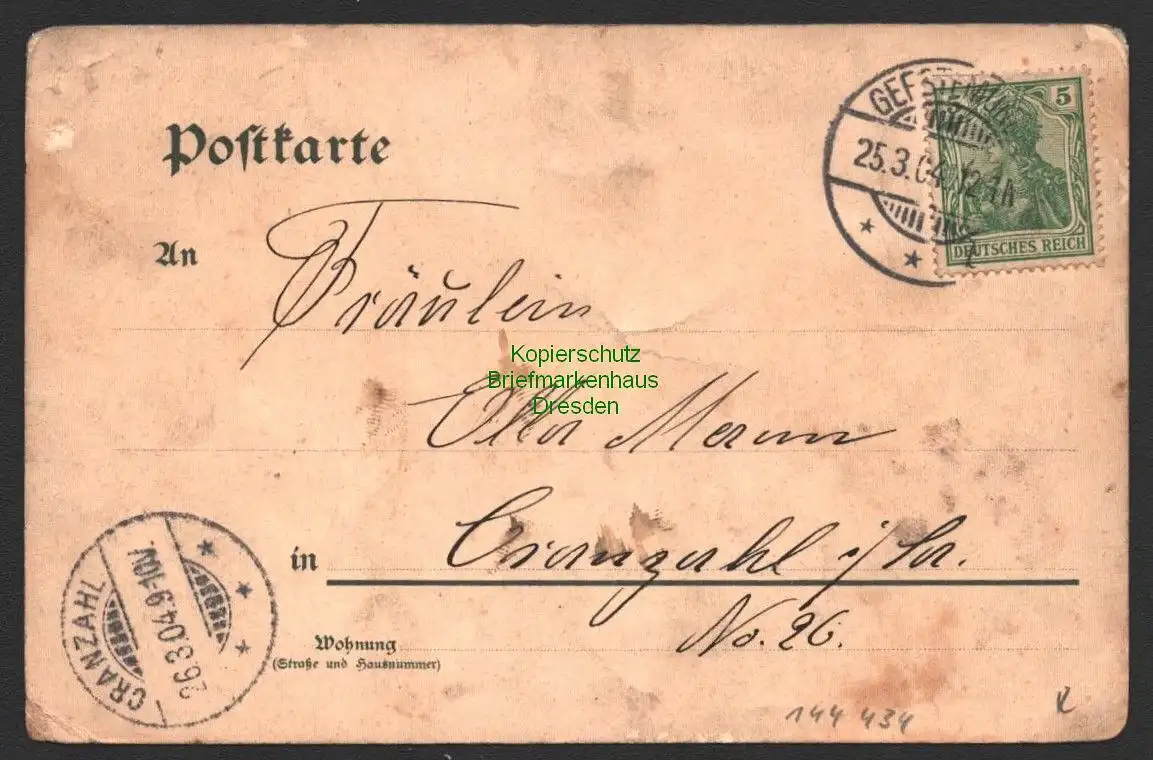 Postkarte
GEESTEMÜNDE
25.3.04.12-1N
5
DEUTSCHES REICH
An
Fräulein
Kopierschutz
Briefmarkenhaus
Dresden
Ella
in
Cranzahl i/Sa.
No. 26.
Wohnung
(Straße und Hausnummer)
CRANZAHL
26.3.04.9-10V.
144 434